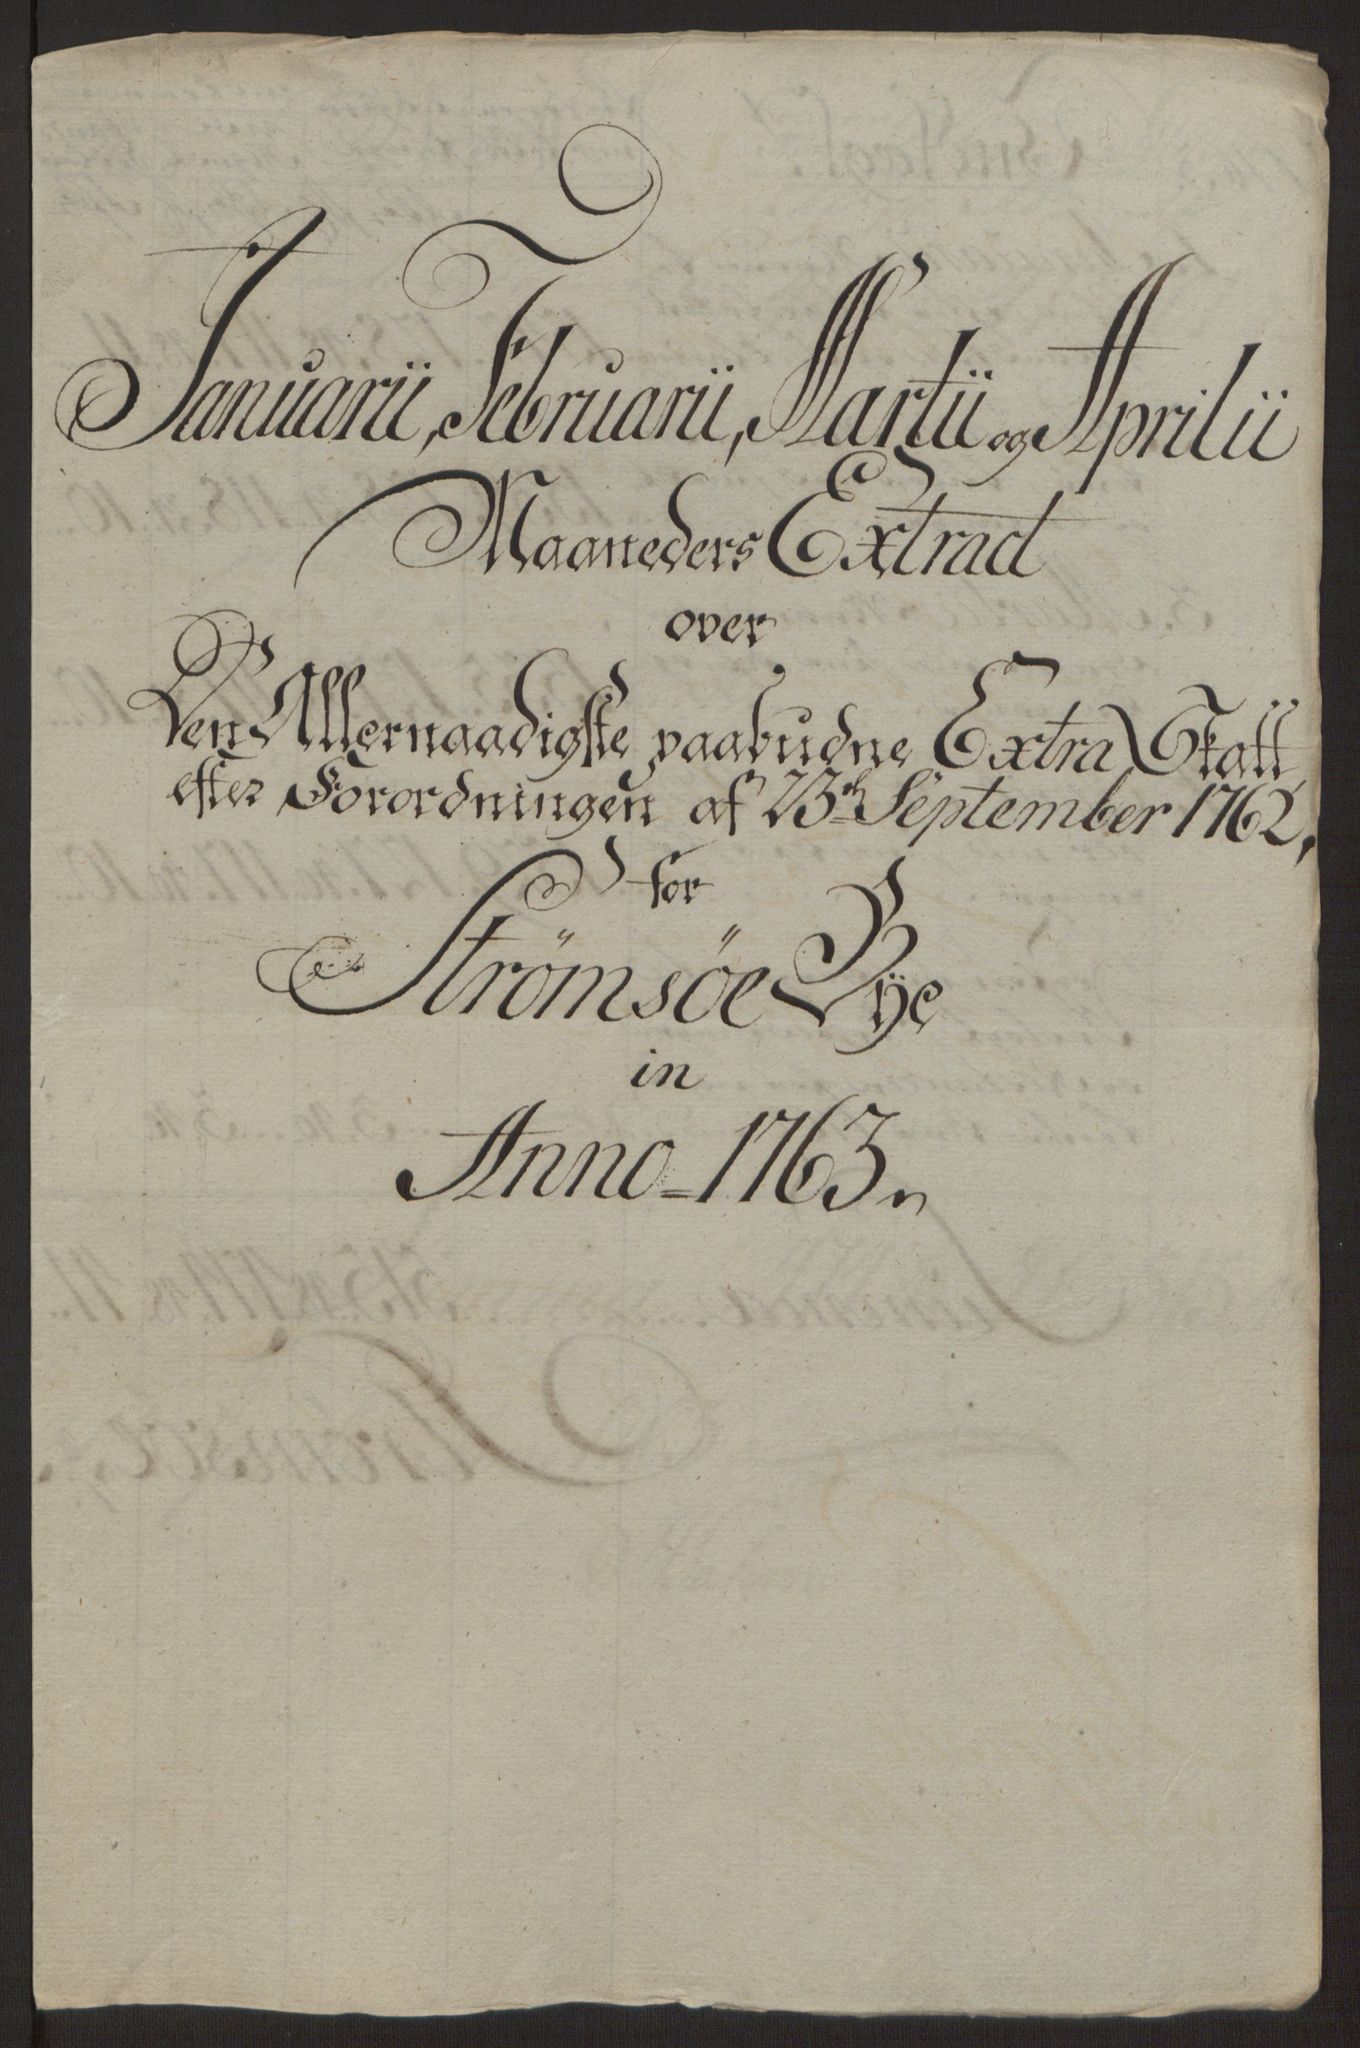 Januarii, Februarii, Martii og Aprilii
Maaneders Extract
over
Den Allernaadigste paabudne Extra Skatt
efter Forordningen af 23de September 1762,
for
Strømsøe Bÿe
in
Anno 1763.